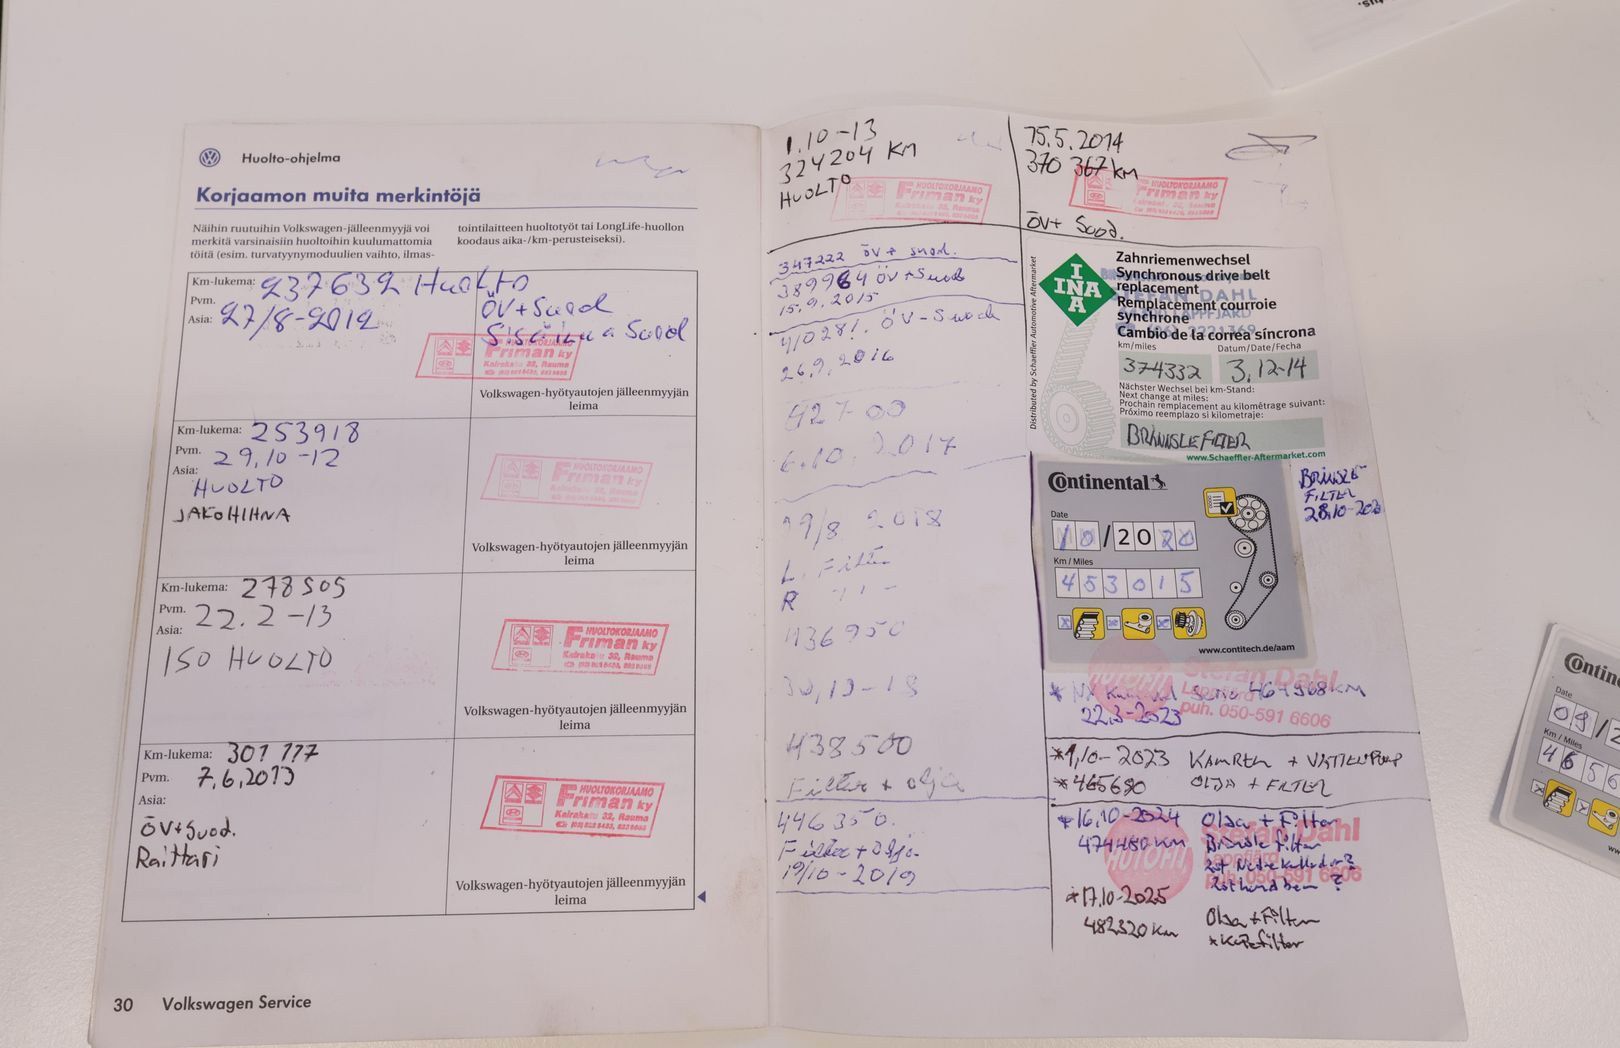 Huolto-ohjelma
Korjaamon muita merkintöjä
Näihin ruutuihin Volkswagen-jälleenmyyjä voi
merkitä varsinaisiin huoltoihin kuulumattomia
töitä (esim. turvatyynymoduulien vaihto, ilmas-
tointilaitteen huoltotyöt tai LongLife-huollon
koodaus aika-/km-perusteiseksi).
Km-lukema: 237632 Huolto
Pvm. 27/8-2012
Asia:
ÖV+Suod
Sisäilma Suod
HUOLTOKORJAAMO
Friman ky
Kairakatu 32, Rauma
Volkswagen-hyötyautojen jälleenmyyjän
leima
Km-lukema: 253918
Pvm. 29,10-12
Asia:
HUOLTO
JAKOHIHNA
HUOLTOKORJAAMO
Friman ky
Kairakatu 32, Rauma
Volkswagen-hyötyautojen jälleenmyyjän
leima
Km-lukema: 278505
Pvm. 22.2-13
Asia:
ISO HUOLTO
HUOLTOKORJAAMO
Friman ky
Kairakatu 32, Rauma
Volkswagen-hyötyautojen jälleenmyyjän
leima
Km-lukema: 301 117
Pvm. 7,6,2013
Asia:
ÖV+Suod.
Raittari
HUOLTOKORJAAMO
Friman ky
Kairakatu 32, Rauma
Volkswagen-hyötyautojen jälleenmyyjän
leima
30 Volkswagen Service
1.10-13
324204 KM
HUOLTO
HUOLTOKORJAAMO
Friman ky
Kairakatu 32, Rauma
347222 ÖV + suod.
389964 ÖV+Suod
15.9.2015
410281. ÖV-Suod
26.9.2016
6.10.2017
2018
L. Filter
R
436950
438500
Filter + olja
446350.
Filter + Olja
19/10-2019
15.5.2014
370 367 KM
HUOLTOKORJAAMO
Friman ky
Kairakatu 32, Rauma
ÖV+ Suod.
INA
Distributed by Schaeffler Automotive Aftermarket
Zahnriemenwechsel
Synchronous drive belt
replacement
Remplacement courroie
synchrone
Cambio de la correa síncrona
STEFAN DAHL
LAPPFJÄRD
km/miles
Datum/Date/Fecha
374332
3.12-14
Nächster Wechsel bei km-Stand:
Next change at miles:
Prochain remplacement au kilométrage suivant:
Próximo reemplazo si kilometraje:
BRÄNNSLEFILTER
www.Schaeffler-Aftermarket.com
Continental
Date
10/2020
Km / Miles
453015
www.contitech.de/aam
BRÄNSLE
FILTER
28.10-2020
Stefan Dahl
Lappfjärd
puh. 050-591 6606
22.3-2023
*1,10-2023 KAMREM + VATTENPUMP
*465680 OLJA + FILTER
*16,10-2024 Olja + Filter
474480 KM Bränsle filter
AUTOFIT
Stefan Dahl
Lappfjärd
puh. 050-591 6606
*17,10-2025 Olja + Filter
482320 Km
Contin
Date
09/2
Km / Miles
4656